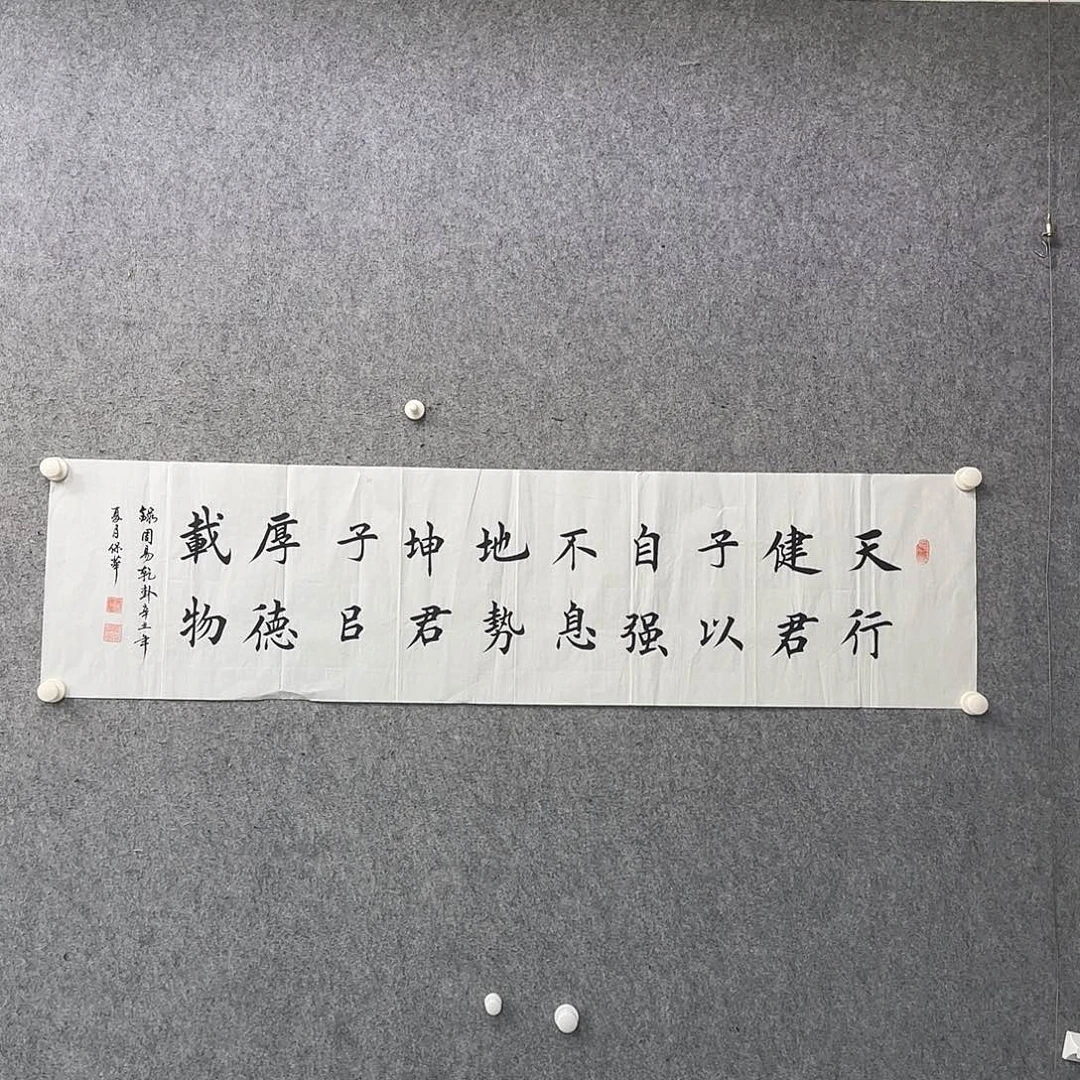 天行
健君
子以
自强
不息
地势
坤君
子㠯
厚德
載物
録周易乾卦辛丑年
夏月保華